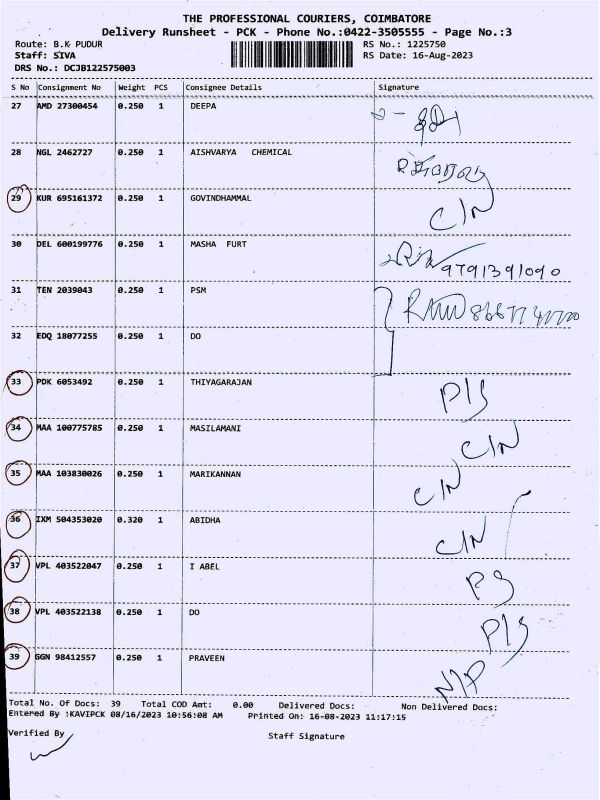 THE PROFESSIONAL COURIERS, COIMBATORE
Delivery Runsheet - PCK - Phone No.:0422-3505555 - Page No.:3
Route: B.K PUDUR RS No.: 1225750
Staff: SIVA RS Date: 16-Aug-2023
DRS No.: DCJB122575003
S No Consignment No Weight PCS Consignee Details Signature
27 AMD 27300454 0.250 1 DEEPA
28 NGL 2462727 0.250 1 AISHVARYA CHEMICAL
29 KUR 695161372 0.250 1 GOVINDHAMMAL C/N
30 DEL 600199776 0.250 1 MASHA FURT 9791391090
31 TEN 2039043 0.250 1 PSM
32 EDQ 18077255 0.250 1 DO
33 PDK 6053492 0.250 1 THIYAGARAJAN P/S
34 MAA 100775785 0.250 1 MASILAMANI C/N
35 MAA 103830026 0.250 1 MARIKANNAN C/N
36 IXM 504353020 0.320 1 ABIDHA C/N
37 VPL 403522047 0.250 1 I ABEL PS
38 VPL 403522138 0.250 1 DO P/S
39 GGN 98412557 0.250 1 PRAVEEN N/P
Total No. Of Docs: 39 Total COD Amt: 0.00 Delivered Docs: Non Delivered Docs:
Entered By :KAVIPCK 08/16/2023 10:56:08 AM Printed On: 16-08-2023 11:17:15
Verified By Staff Signature